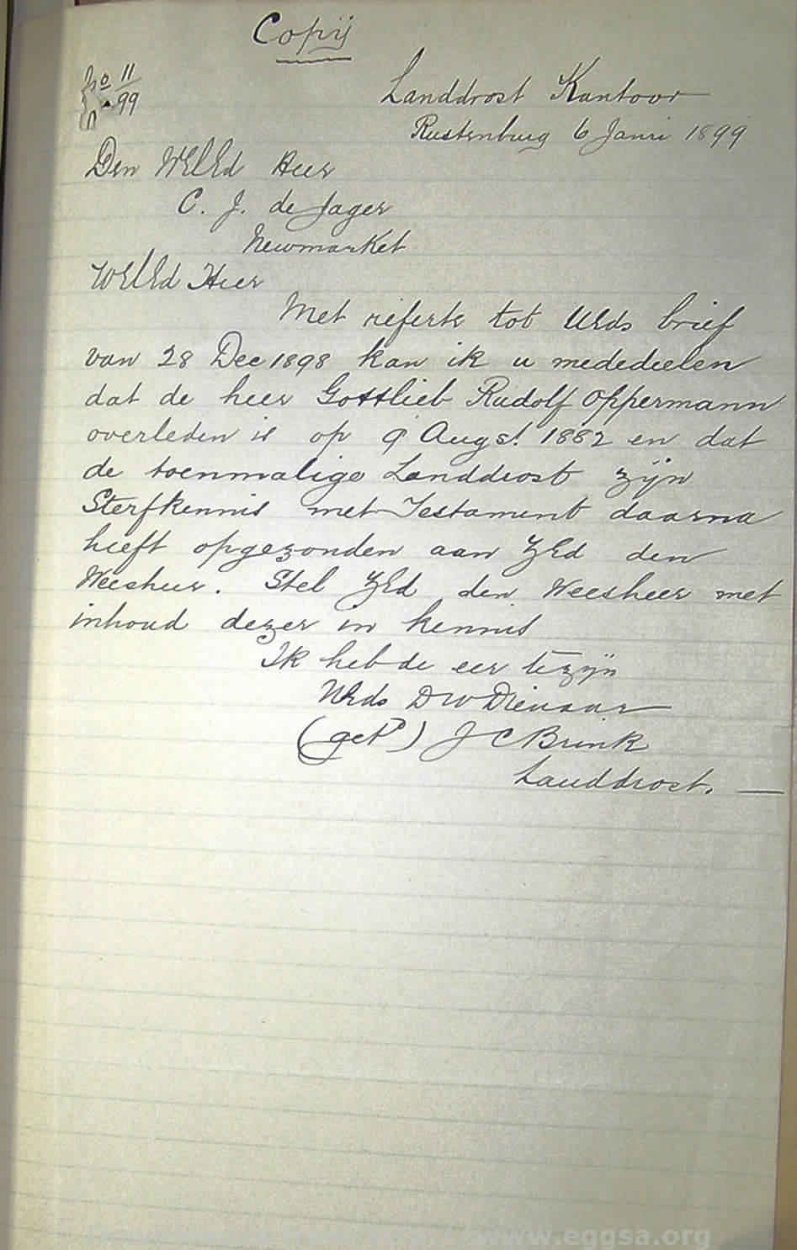 Copij
No 11/99
Landdrost Kantoor
Rustenburg 6 Janri 1899
Den WelEd Heer
C. J. de Jager
Newmarket
WelEd Heer
Met referte tot UEds brief
van 28 Dec 1898 kan ik u mededeelen
dat de heer Gottlieb Rudolf Oppermann
overleden is op 9 Augst. 1882 en dat
de toenmalige Landdrost zijn
Sterfkennis met Testament daarna
heeft opgezonden aan ZEd den
Weesheer. Stel ZEd den Weesheer met
inhoud dezer in kennis
Ik heb de eer te zijn
UEds DW Dienaar
(get) J C Brink
Landdrost. —
www.eggsa.org